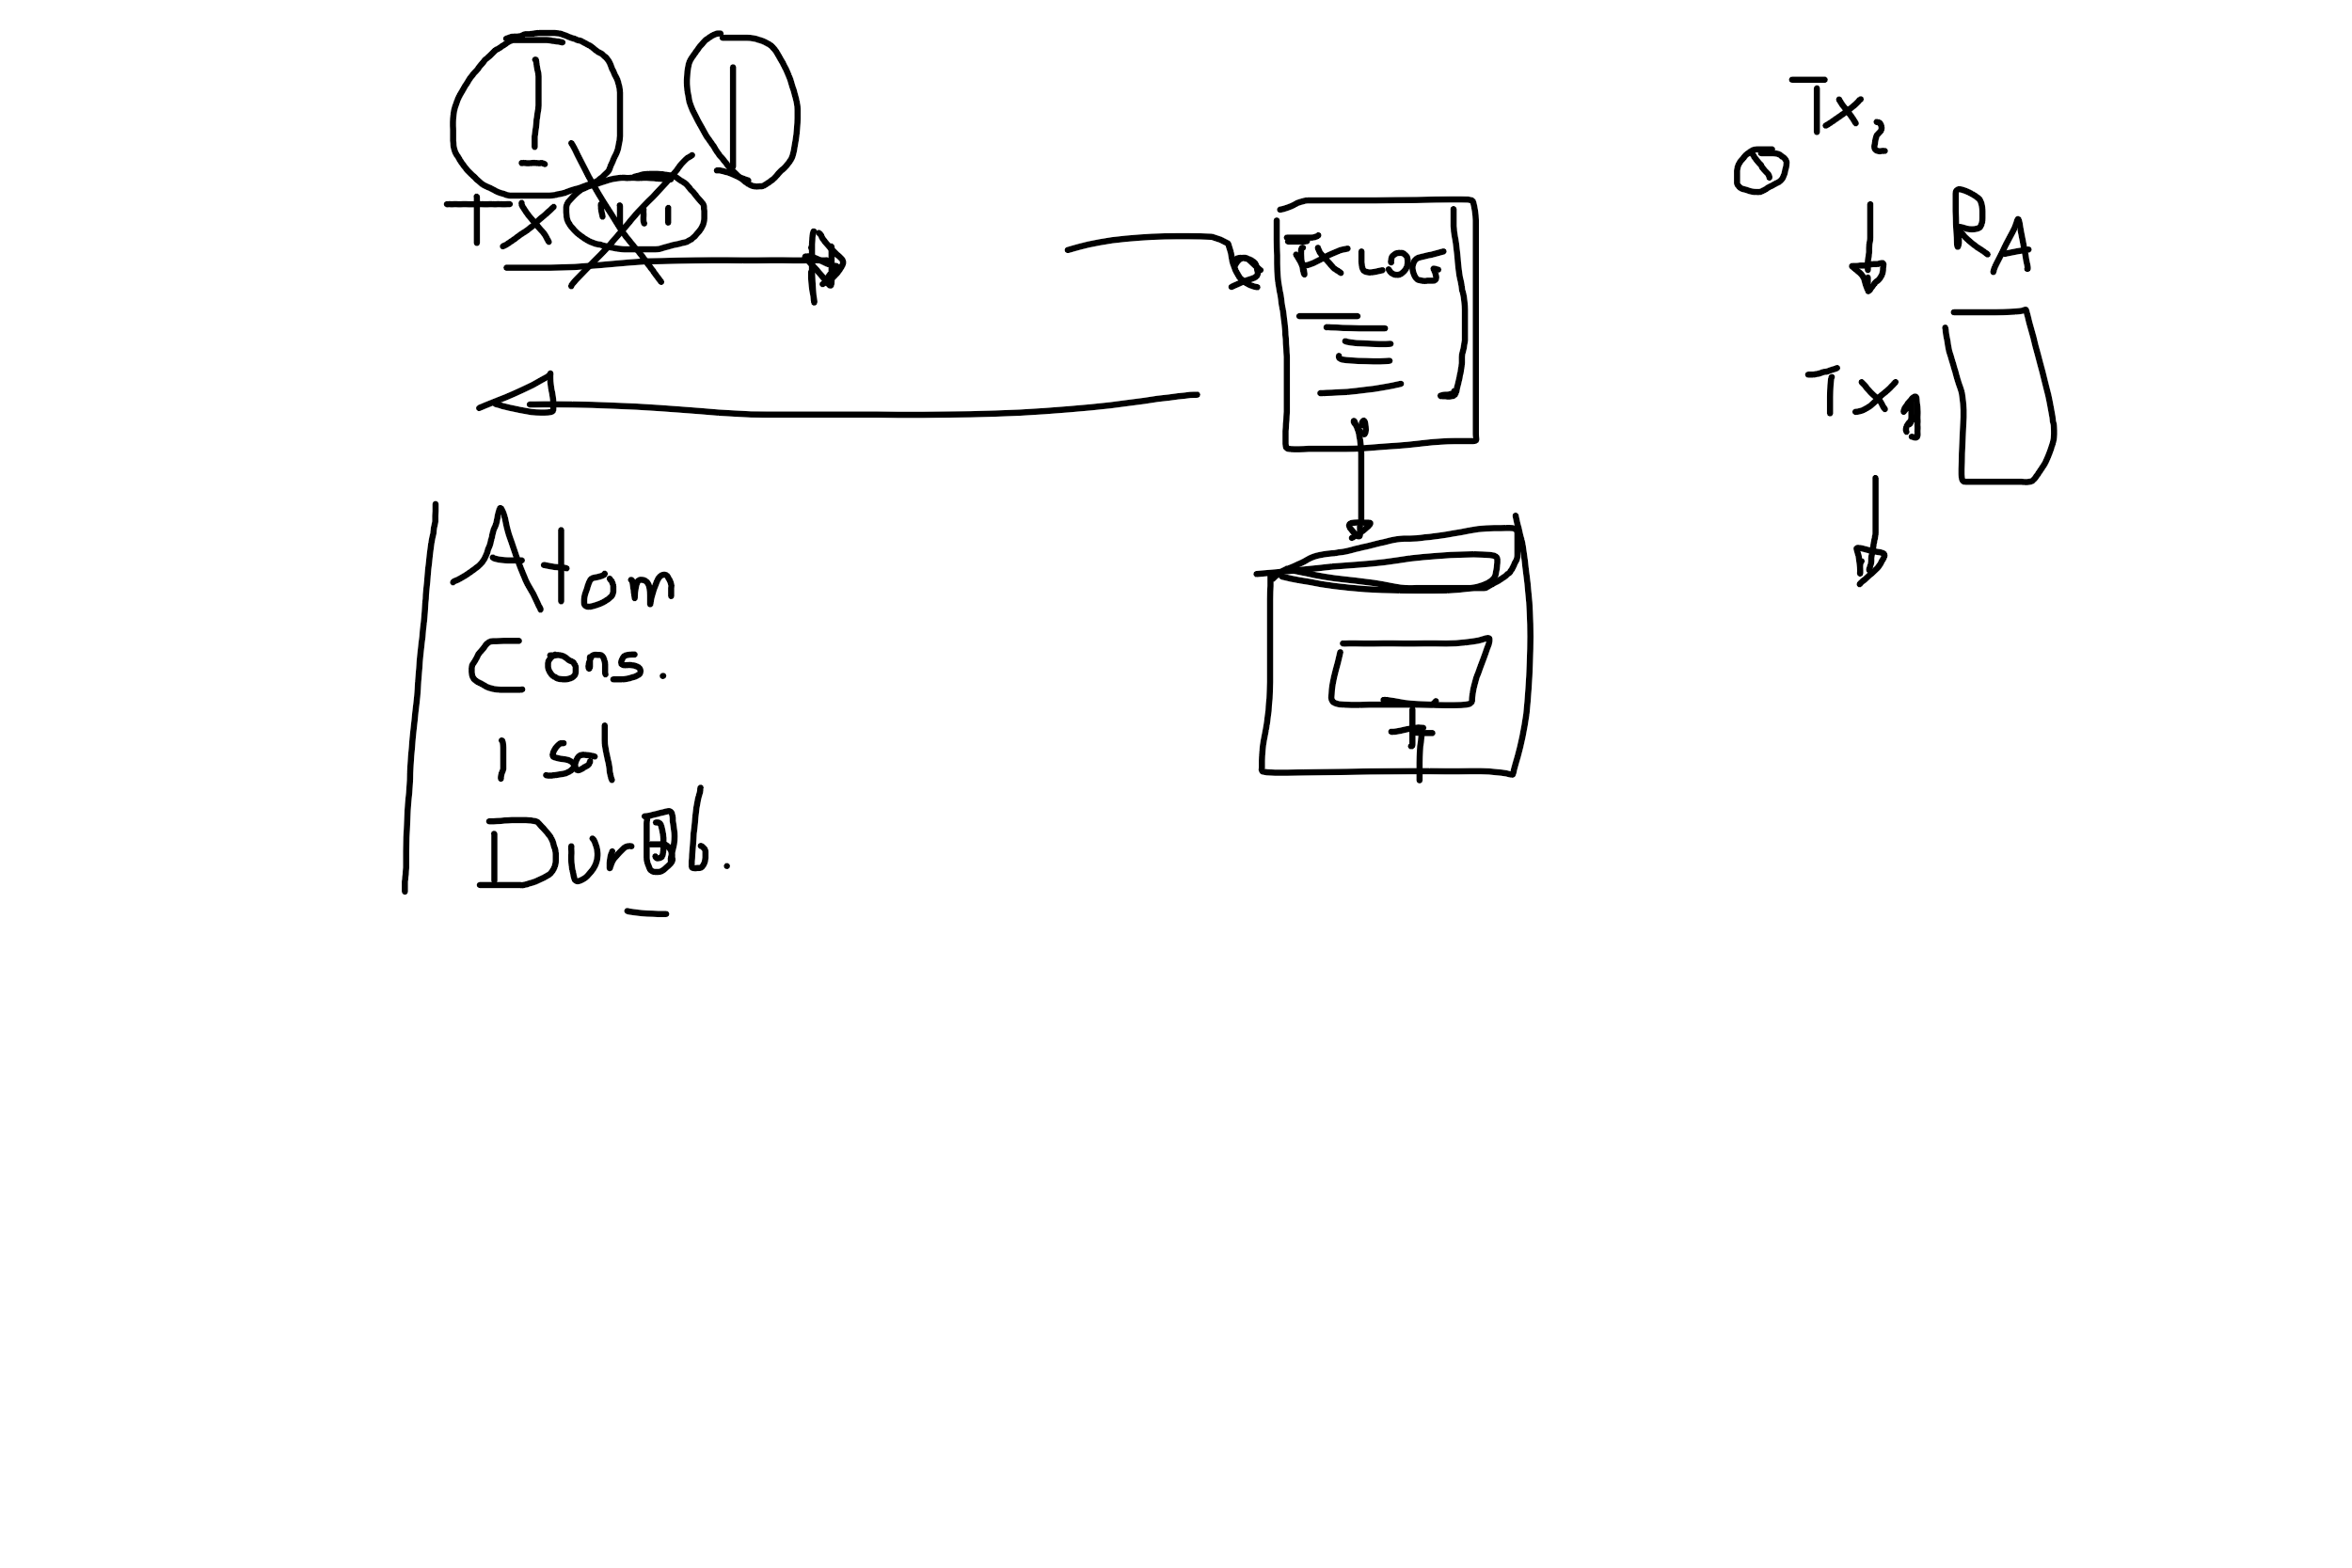 Tx
Tx Log
Tx2
RA
Tx
Atom
Cons.
Isol
Durab.